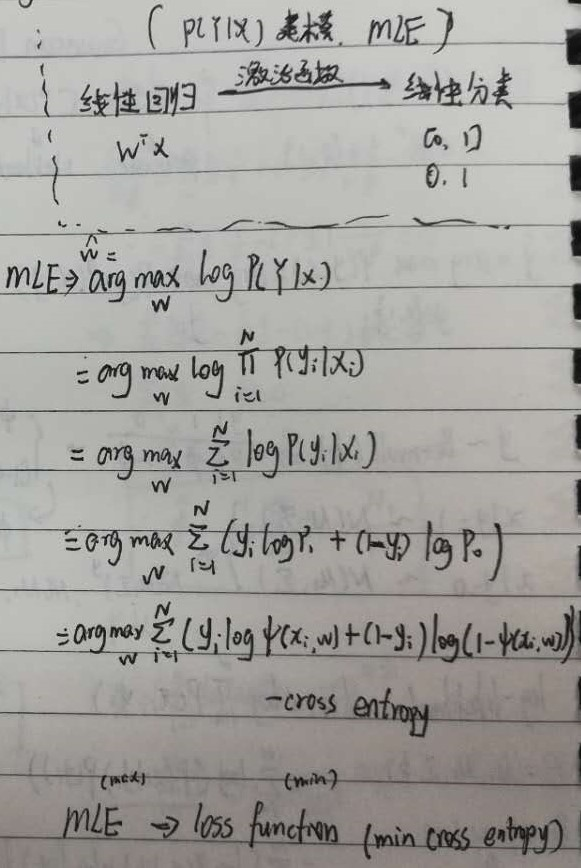 (P(Y|X) 建模, MLE)
线性回归 激活函数→ 线性分类
Wᵀx [0, 1]
0, 1
ŵ =
MLE ⇒ arg max_W log P(Y|X)
= arg max_W log ∏_{i=1}^{N} P(y_i|x_i)
= arg max_W ∑_{i=1}^{N} log P(y_i|x_i)
= arg max_W ∑_{i=1}^{N} (y_i log P_1 + (1-y_i) log P_0)
= arg max_W ∑_{i=1}^{N} (y_i log ψ(x_i, w) + (1-y_i) log (1-ψ(x_i, w)))
-cross entropy
(max) (min)
MLE → loss function (min cross entropy)